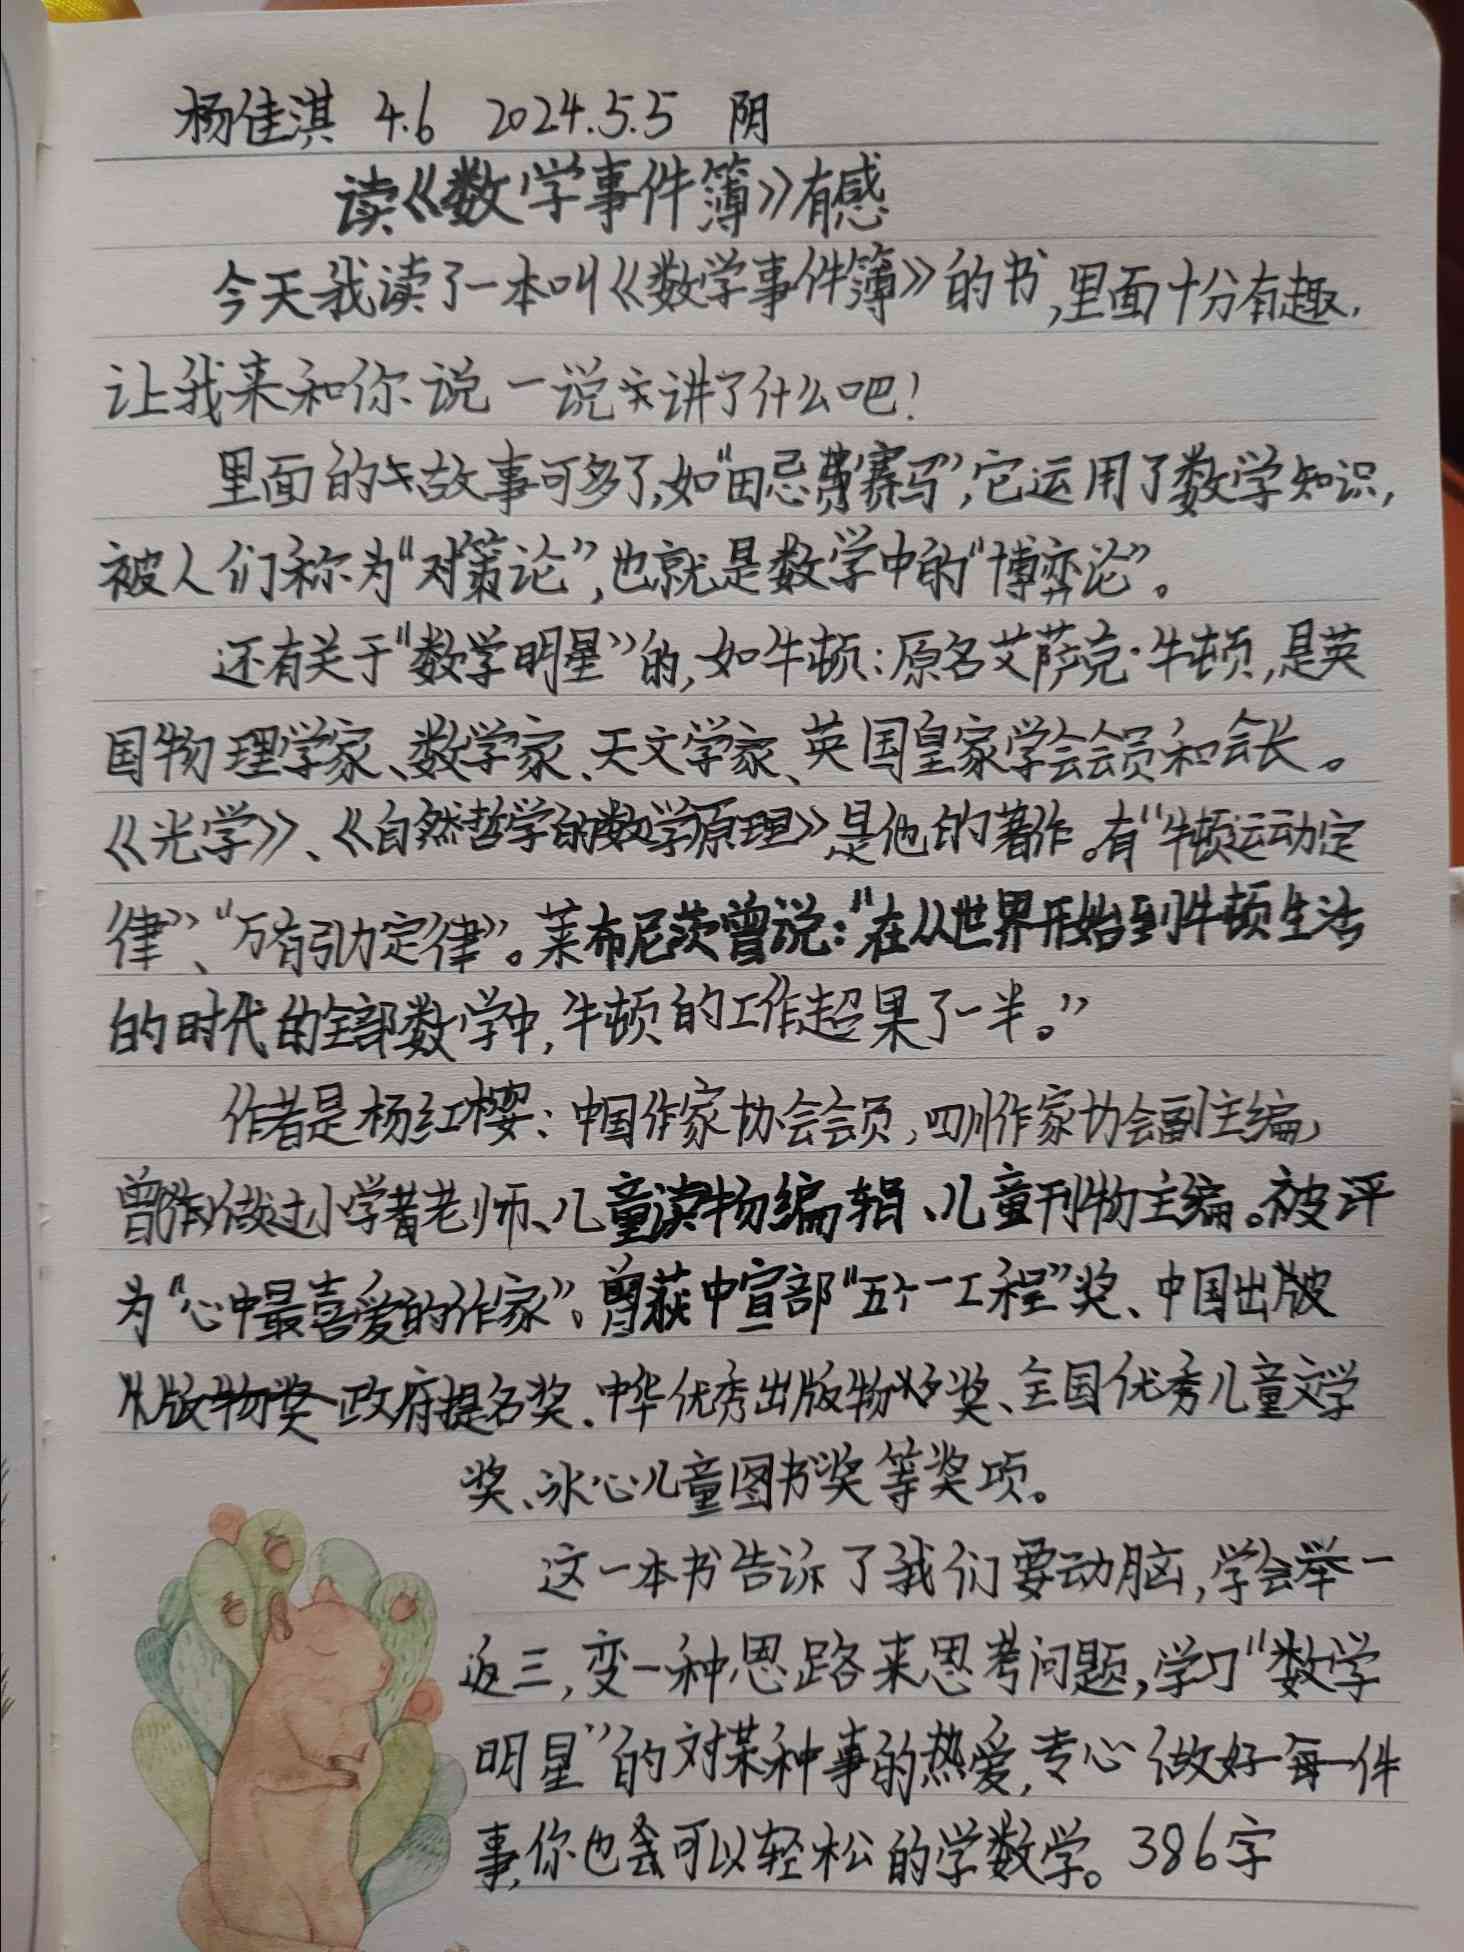 杨佳淇 4.6 2024.5.5 阴
读《数学事件簿》有感
今天我读了一本叫《数学事件簿》的书,里面十分有趣,
让我来和你说一说讲了什么吧!
里面的故事可多了,如“田忌赛马”,它运用了数学知识,
被人们称为“对策论”,也就是数学中的“博弈论”。
还有关于“数学明星”的,如牛顿:原名艾萨克·牛顿,是英
国物理学家、数学家、天文学家、英国皇家学会会员和会长。
《光学》、《自然哲学的数学原理》是他的著作。有“牛顿运动定
律”、“万有引力定律”。莱布尼茨曾说:“在从世界开始到牛顿生活
的时代的全部数学中,牛顿的工作超果了一半。”
作者是杨红樱:中国作家协会会员,四川作家协会副主编,
曾做过小学老师、儿童读物编辑、儿童刊物主编。被评
为“心中最喜爱的作家”。曾获中宣部“五个一工程”奖、中国出版
政府提名奖、中华优秀出版物奖、全国优秀儿童文学
奖、冰心儿童图书奖等奖项。
这一本书告诉了我们要动脑,学会举一
返三,变一种思路来思考问题,学习“数学
明星”的对某种事的热爱,专心做好每一件
事,你也可以轻松的学数学。386字